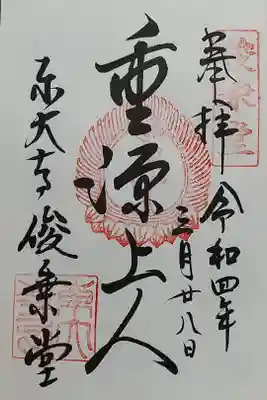 奉拝
令和四年
三月廿八日
重源上人
東大寺俊乗堂